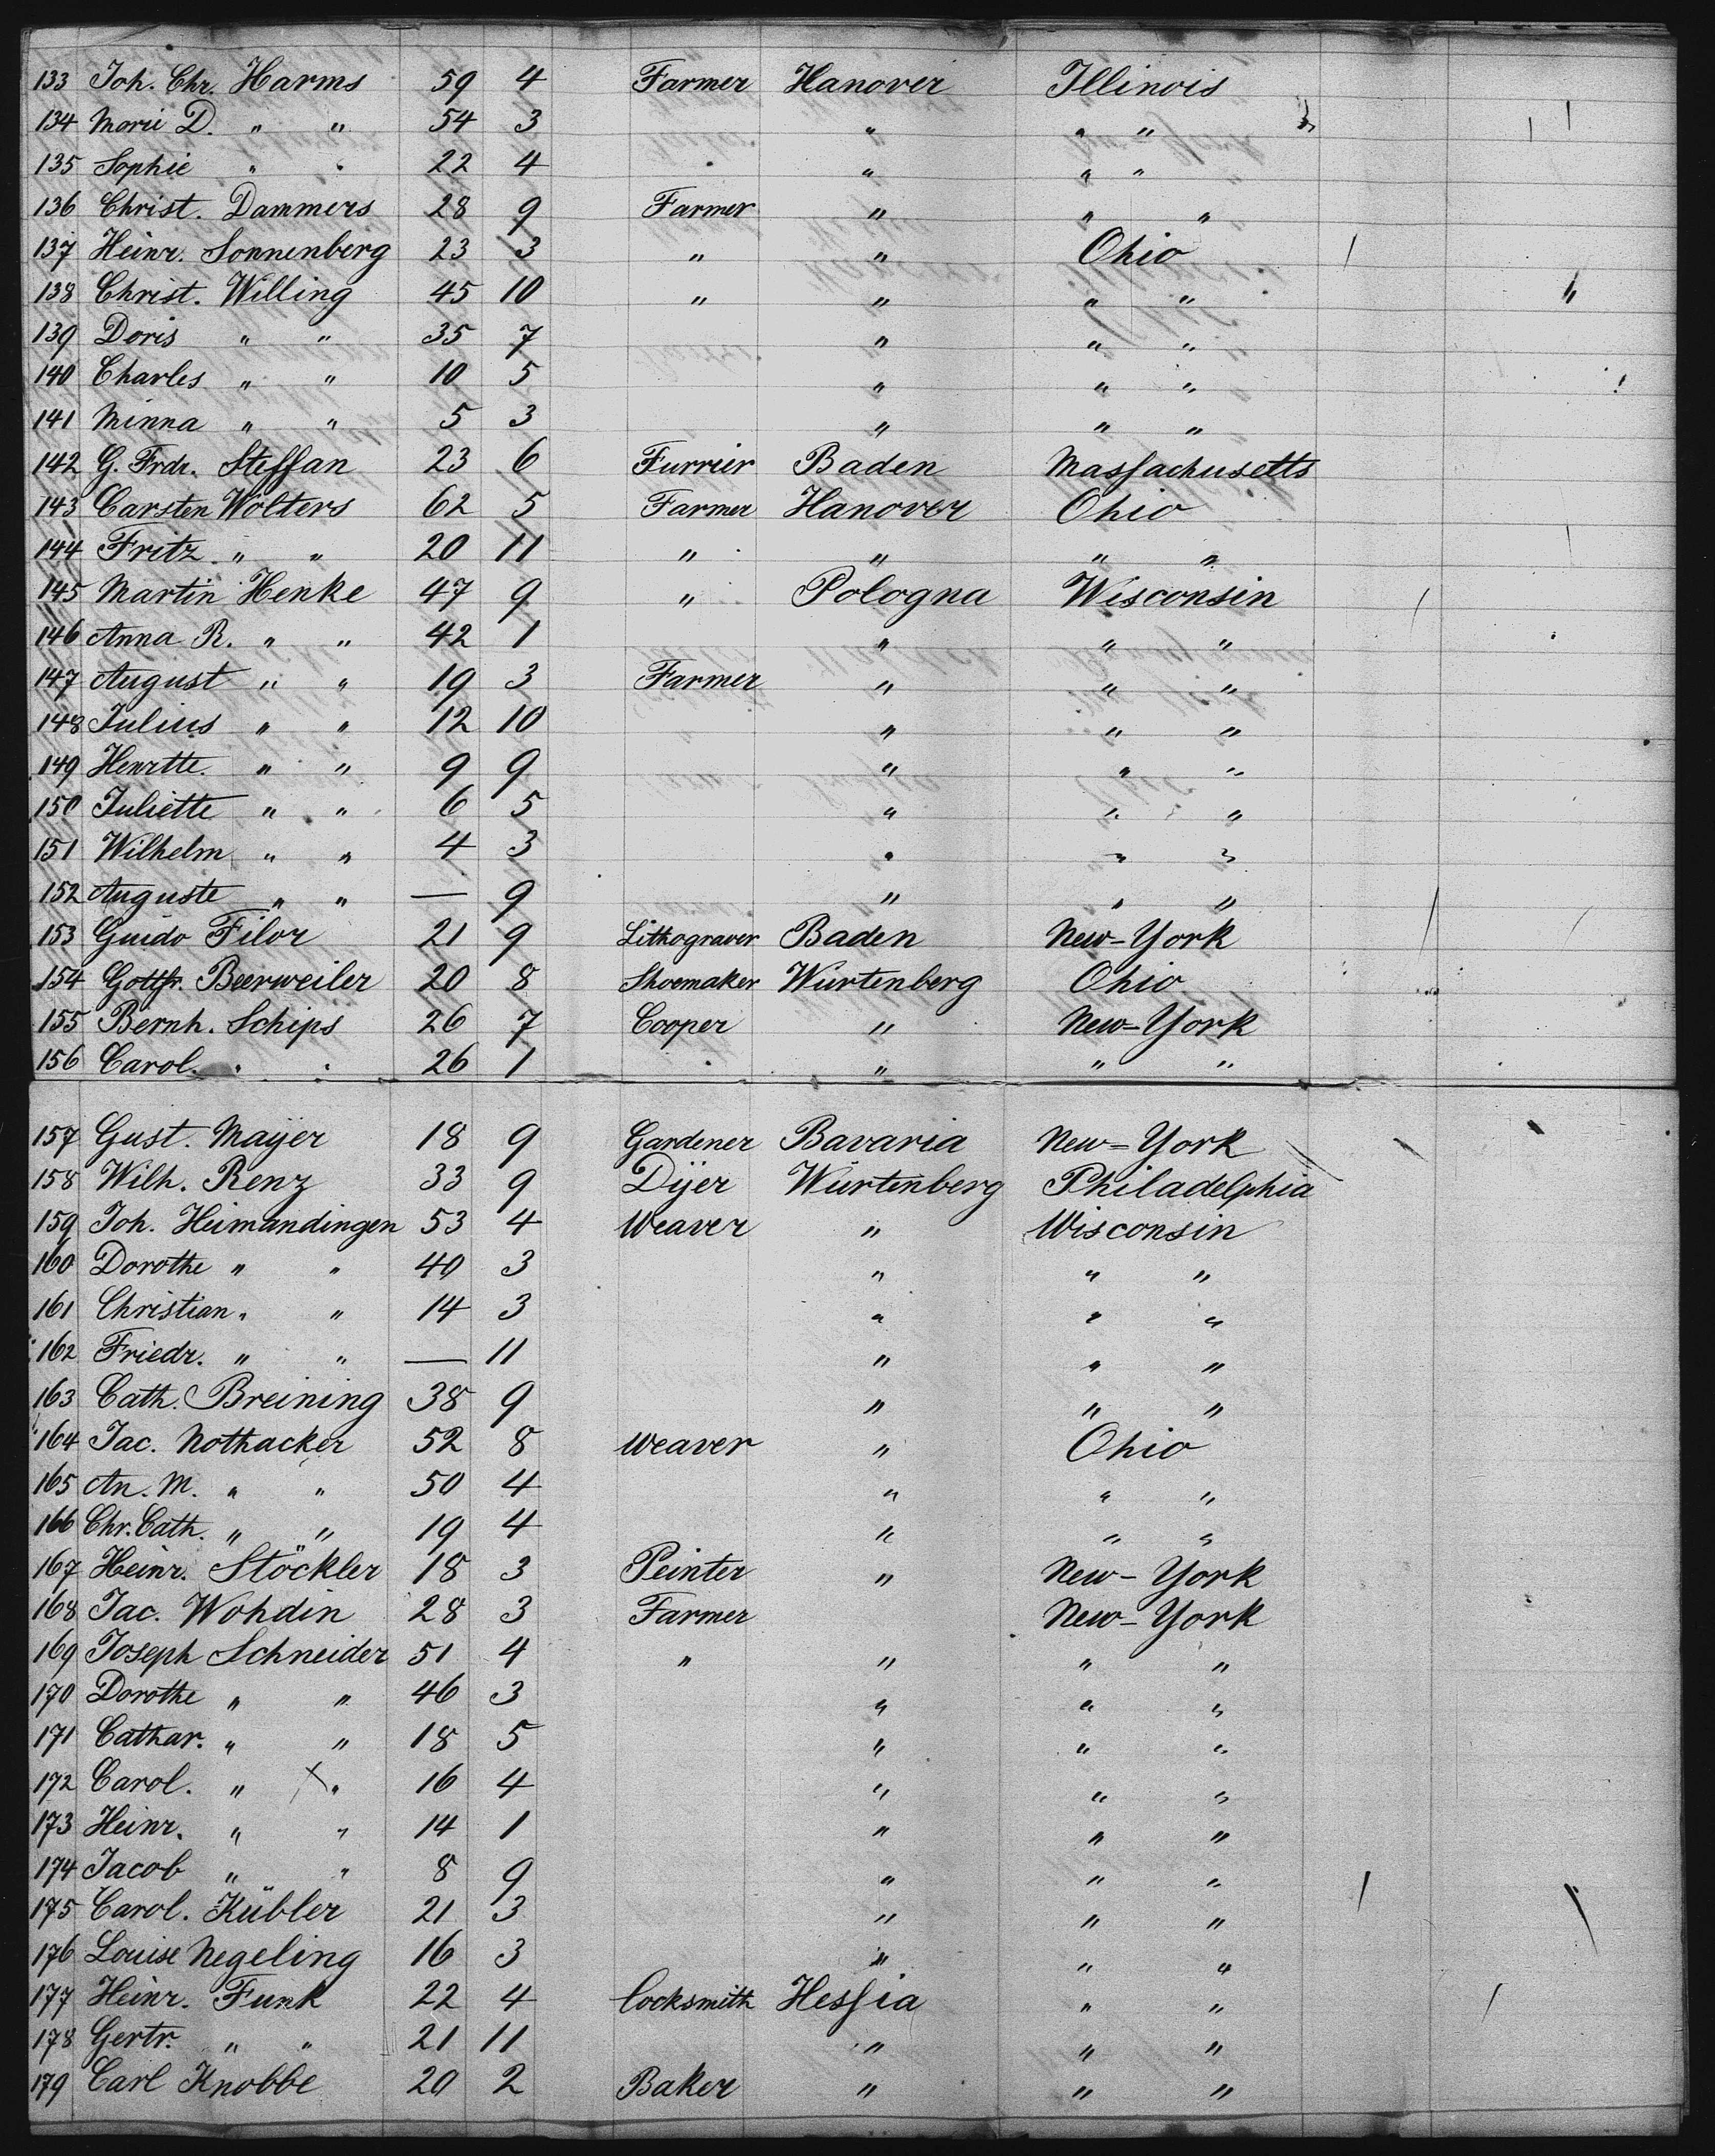 133 Joh. Chr. Harms 59 4 Farmer Hanover Illinois
134 Marie D. " " 54 3 " " "
135 Sophie " " 22 4 " " "
136 Christ. Dammers 28 9 Farmer " " "
137 Heinr. Sonnenberg 23 3 " " Ohio
138 Christ. Willing 45 10 " " " "
139 Doris " " 35 7 " " "
140 Charles " " 10 5 " " "
141 Minna " " 5 3 " " "
142 G. Frdr. Steffan 23 6 Furrier Baden Massachusetts
143 Carsten Wolters 62 5 Farmer Hanover Ohio
144 Fritz " " 20 11 " " " "
145 Martin Henke 47 9 " Pologna Wisconsin
146 Anna R. " " 42 1 " " "
147 August " " 19 3 Farmer " " "
148 Julius " " 12 10 " " "
149 Henrtte. " " 9 9 " " "
150 Juliette " " 6 5 " " "
151 Wilhelm " " 4 3 " " "
152 Auguste " " — 9 " " "
153 Guido Filor 21 9 Lithograver Baden New-York
154 Gottfr. Beerweiler 20 8 Shoemaker Würtenberg Ohio
155 Bernh. Schips 26 7 Cooper " New-York
156 Carol. " " 26 1 " " "
157 Gust. Mayer 18 9 Gardener Bavaria New-York
158 Wilh. Renz 33 9 Dyer Würtenberg Philadelphia
159 Joh. Heimandingen 53 4 Weaver " Wisconsin
160 Dorothe " " 40 3 " " "
161 Christian " " 14 3 " " "
162 Friedr. " " — 11 " " "
163 Cath. Breining 38 9 " " "
164 Jac. Nothacker 52 8 Weaver " Ohio
165 An. M. " " 50 4 " " "
166 Chr. Cath. " " 19 4 " " "
167 Heinr. Stöckler 18 3 Peinter " New-York
168 Jac. Wohdin 28 3 Farmer New-York
169 Joseph Schneider 51 4 " " " "
170 Dorothe " " 46 3 " " "
171 Cathar. " " 18 5 " " "
172 Carol. " X " 16 4 " " "
173 Heinr. " " 14 1 " " "
174 Jacob " " 8 9 " " "
175 Carol. Kübler 21 3 " " "
176 Louise Negeling 16 3 " " "
177 Heinr. Funk 22 4 Locksmith Hessia " "
178 Gertr. " " 21 11 " " "
179 Carl Knobbe 20 2 Baker " " "